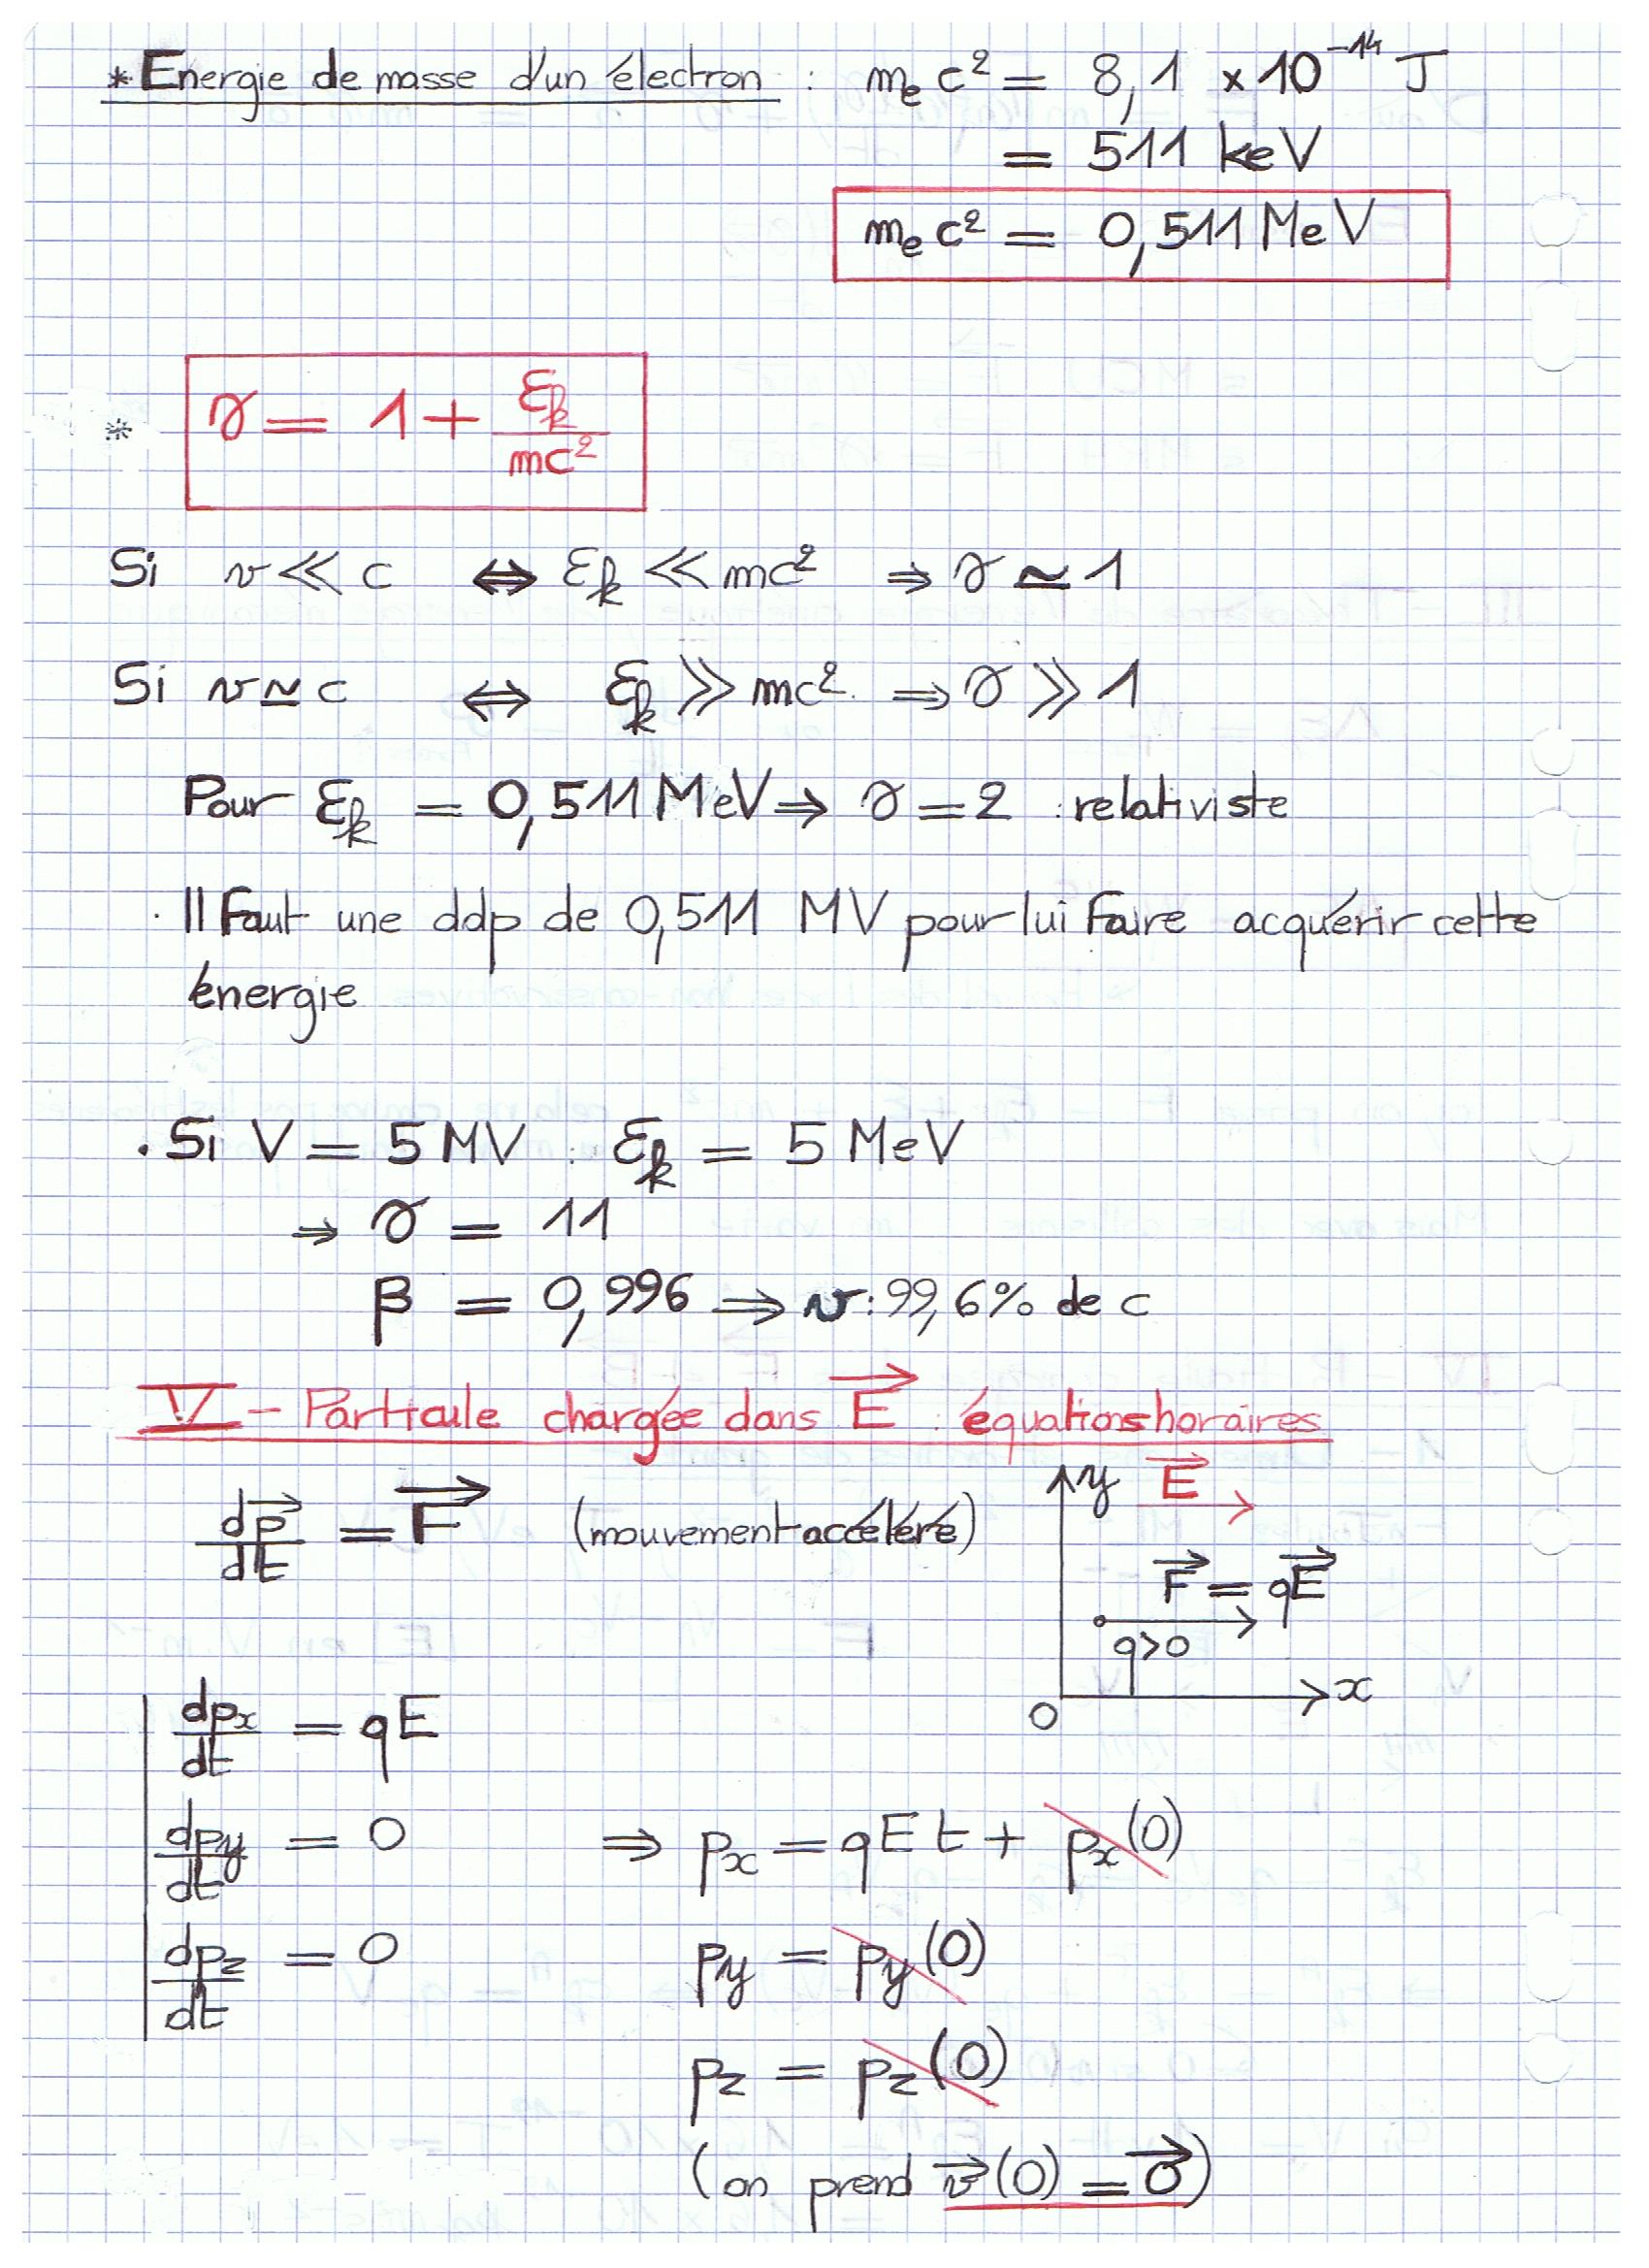 * Energie de masse d'un électron : mₑc² = 8,1 × 10⁻¹⁴ J
= 511 keV
mₑc² = 0,511 MeV
* γ = 1 + εk/mc²
Si v ≪ c ⇔ εk ≪ mc² ⇒ γ ≃ 1
Si v ≃ c ⇔ εk ≫ mc² ⇒ γ ≫ 1
Pour εk = 0,511 MeV ⇒ γ = 2 : relativiste
. Il faut une ddp de 0,511 MV pour lui faire acquérir cette
énergie
. Si V = 5 MV : εk = 5 MeV
⇒ γ = 11
β = 0,996 ⇒ v : 99,6% de c
V - Particule chargée dans E⃗ : équations horaires
dp⃗/dt = F⃗ (mouvement accéléré)
y E⃗
F⃗ = qE⃗
q>0
O x
dpx/dt = qE
dpy/dt = 0 ⇒ px = qEt + px(0)
dpz/dt = 0 py = py(0)
pz = pz(0)
(on prend v⃗(0) = 0⃗)